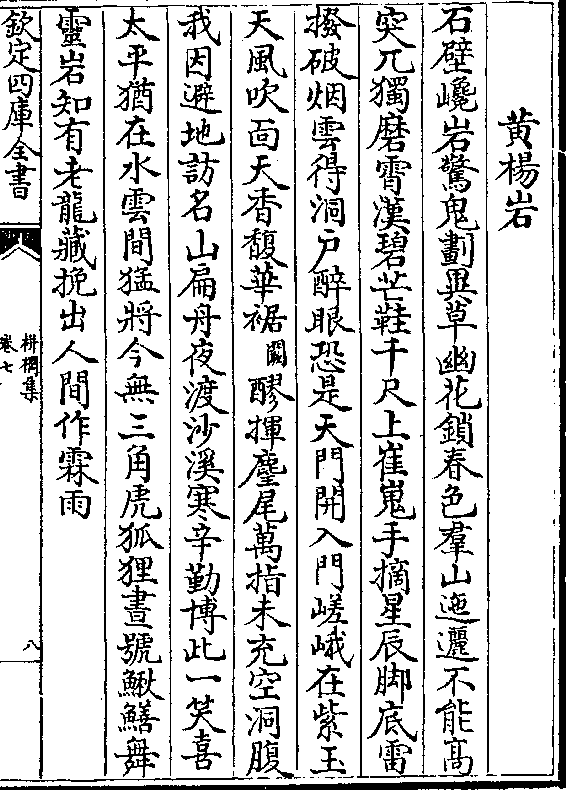 黄楊岩
石壁巉岩驚鬼劃異草幽花鎖春色羣山迤邐不能髙
突兀獨磨霄漢碧芒鞋千尺上崔嵬手摘星辰脚底雷
撥破烟雲得洞户醉眼恐是天門開入門嵯峨在紫玉
天風吹面天香馥華裾闕醪揮麈尾萬指未充空洞腹
我因避地訪名山扁舟夜渡沙溪寒辛勤博此一笑喜
太平猶在水雲間猛將今無三角虎狐狸晝號鰍鱔舞
靈岩知有老龍藏挽出人間作霖雨
欽定四庫全書
栟櫚集
卷七
八